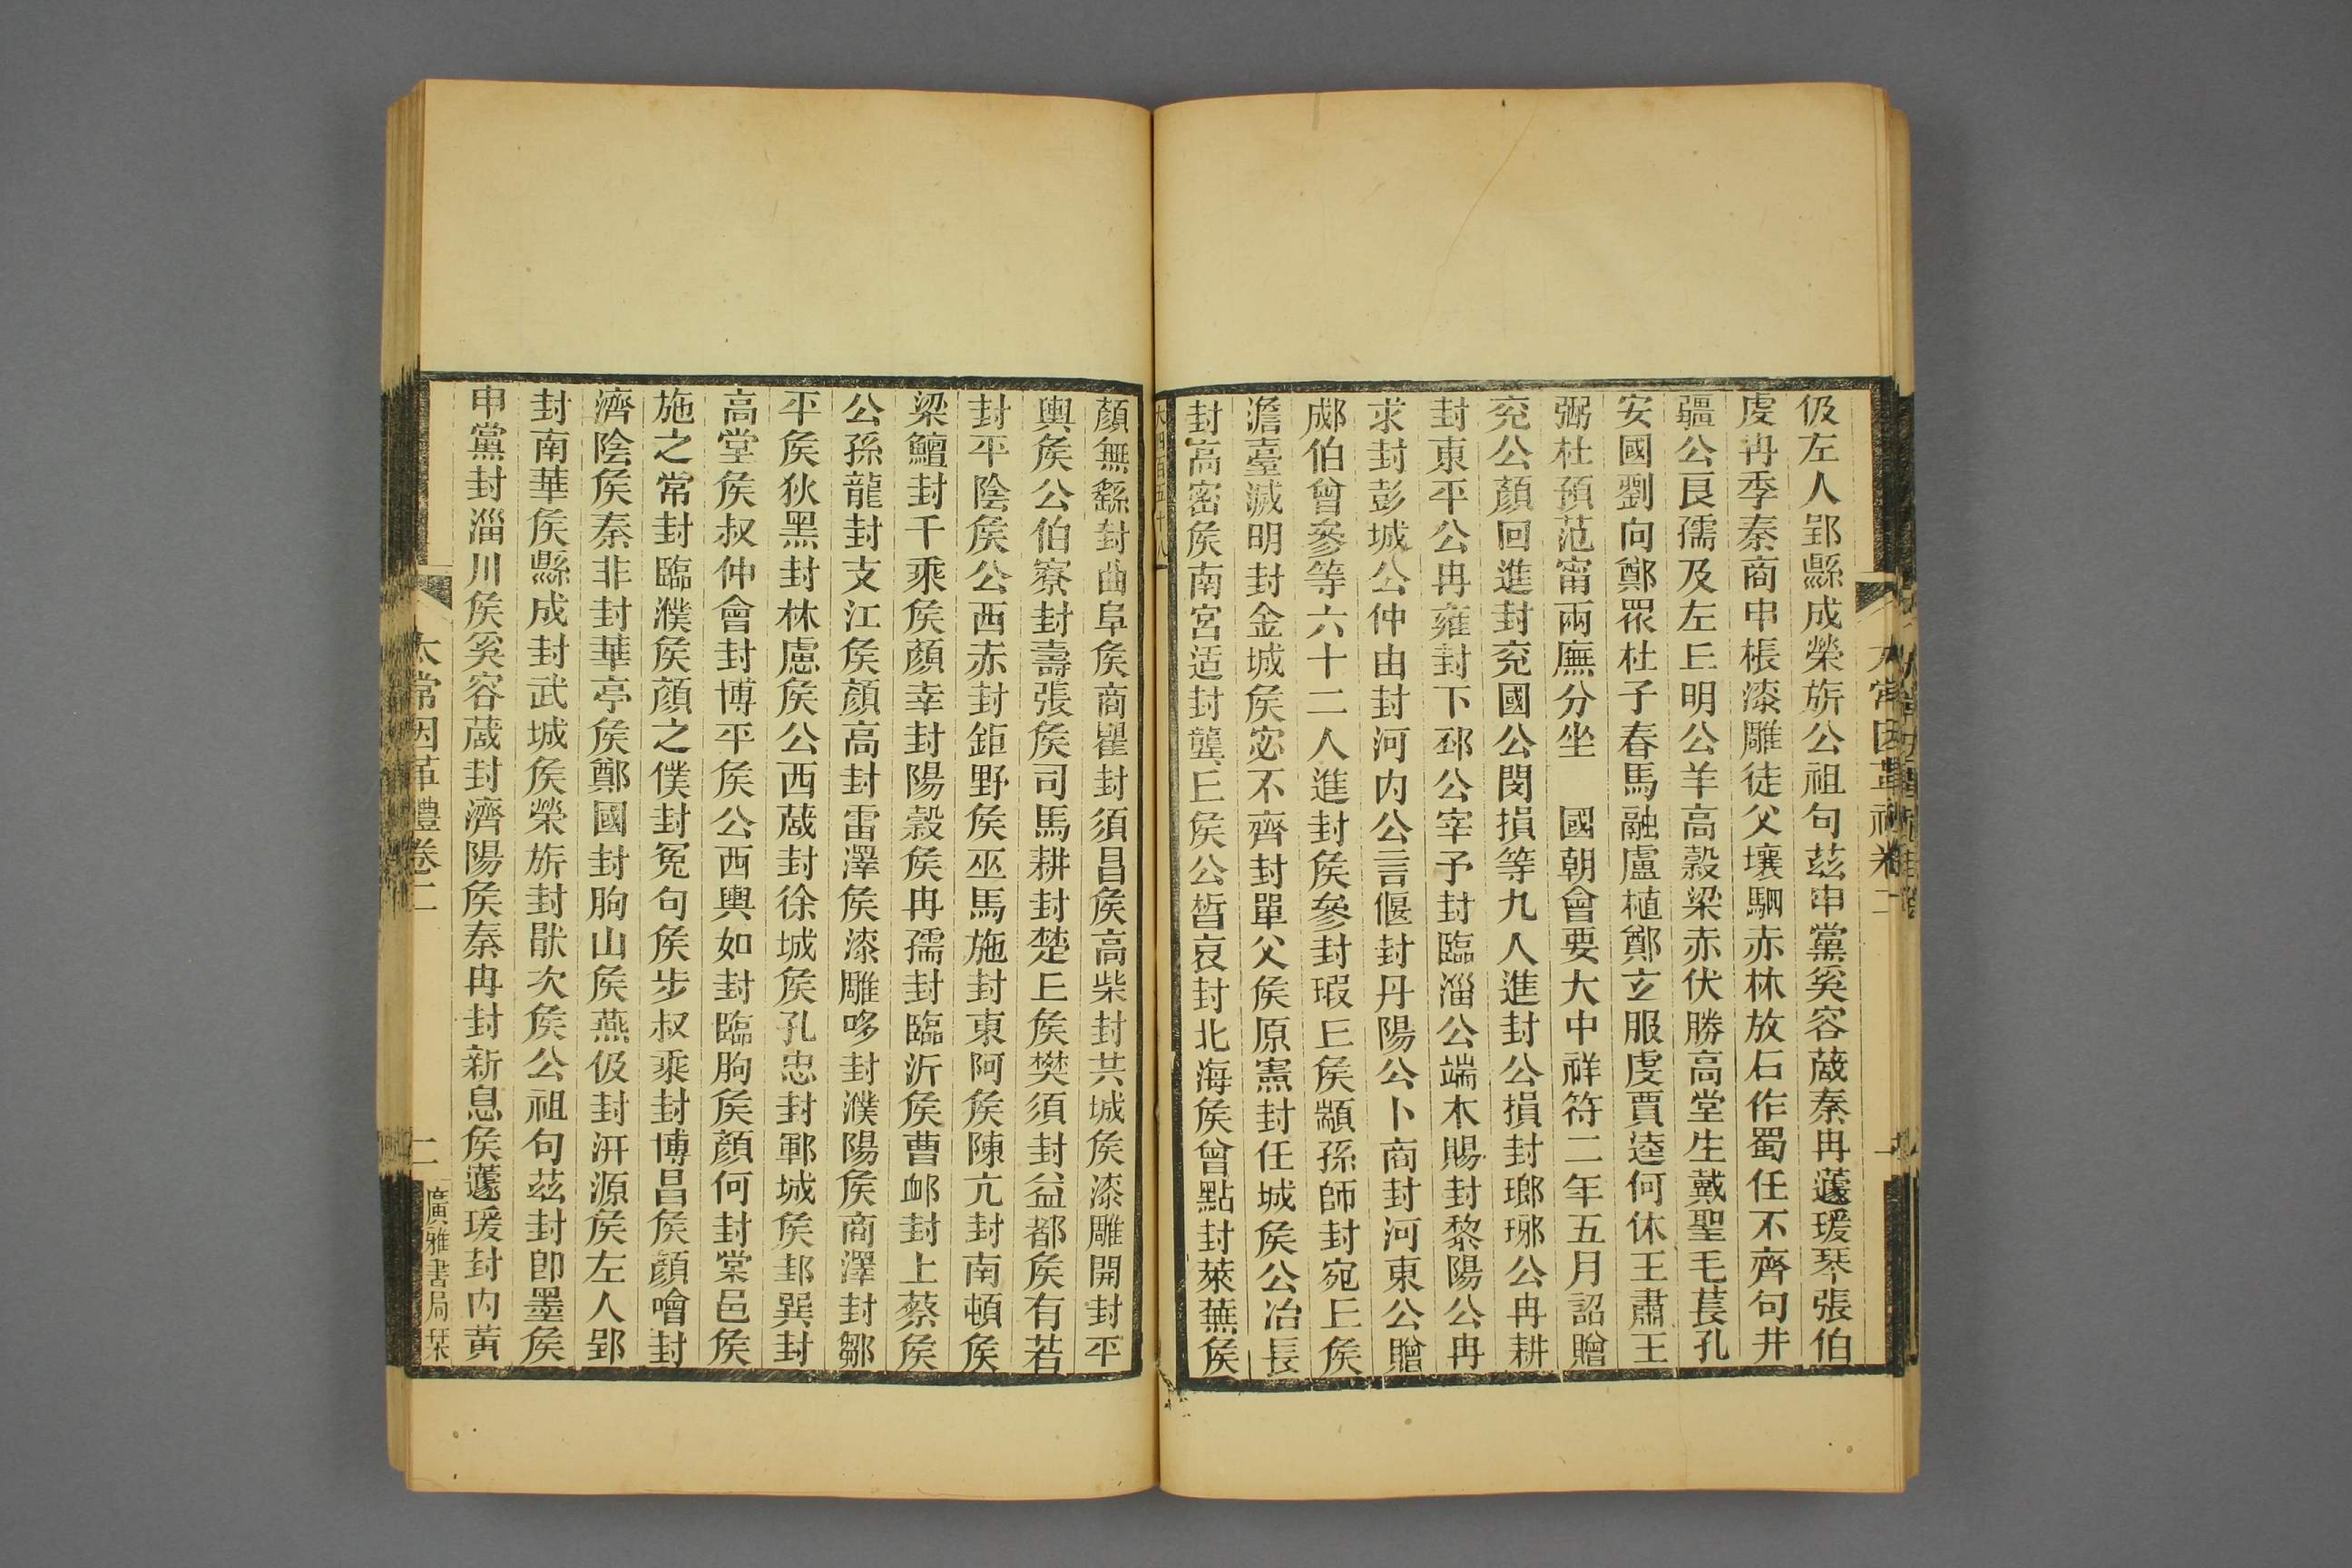 伋左人郢縣成榮旂公祖句茲申黨奚容蒧秦冉蘧瑗琴張伯
虔冉季秦商申棖漆雕徒父壤駟赤林放石作蜀任不齊句井
疆公良孺及左丘明公羊高榖梁赤伏勝高堂生戴聖毛萇孔
安國劉向鄭眾杜子春馬融盧植鄭玄服虔賈逵何休王肅王
弼杜預范甯兩廡分坐　國朝會要大中祥符二年五月詔贈
兖公顏回進封兖國公閔損等九人進封公損封瑯琊公冉耕
封東平公冉雍封下邳公宰予封臨淄公端木賜封黎陽公冉
求封彭城公仲由封河內公言偃封丹陽公卜商封河東公贈
郕伯曾參等六十二人進封侯參封瑕丘侯顓孫師封宛丘侯
澹臺滅明封金城侯宓不齊封單父侯原憲封任城侯公冶長
封高密侯南宮适封龔丘侯公晳哀封北海侯曾點封萊蕪侯
大四百五十八
顏無繇封曲阜侯商瞿封須昌侯高柴封共城侯漆雕開封平
輿侯公伯寮封壽張侯司馬耕封楚丘侯樊須封益都侯有若
封平陰侯公西赤封鉅野侯巫馬施封東阿侯陳亢封南頓侯
梁鱣封千乘侯顏幸封陽榖侯冉孺封臨沂侯曹卹封上蔡侯
公孫龍封支江侯顏高封雷澤侯漆雕哆封濮陽侯商澤封鄒
平侯狄黑封林慮侯公西蒧封徐城侯孔忠封鄆城侯邽巽封
高堂侯叔仲會封博平侯公西輿如封臨朐侯顏何封棠邑侯
施之常封臨濮侯顏之僕封冤句侯步叔乘封博昌侯顏噲封
濟陰侯秦非封華亭侯鄭國封朐山侯燕伋封汧源侯左人郢
封南華侯縣成封武城侯榮旂封厭次侯公祖句茲封卽墨侯
申黨封淄川侯奚容蒧封濟陽侯秦冉封新息侯蘧瑗封內黃
太常因革禮卷二　二　廣雅書局栞